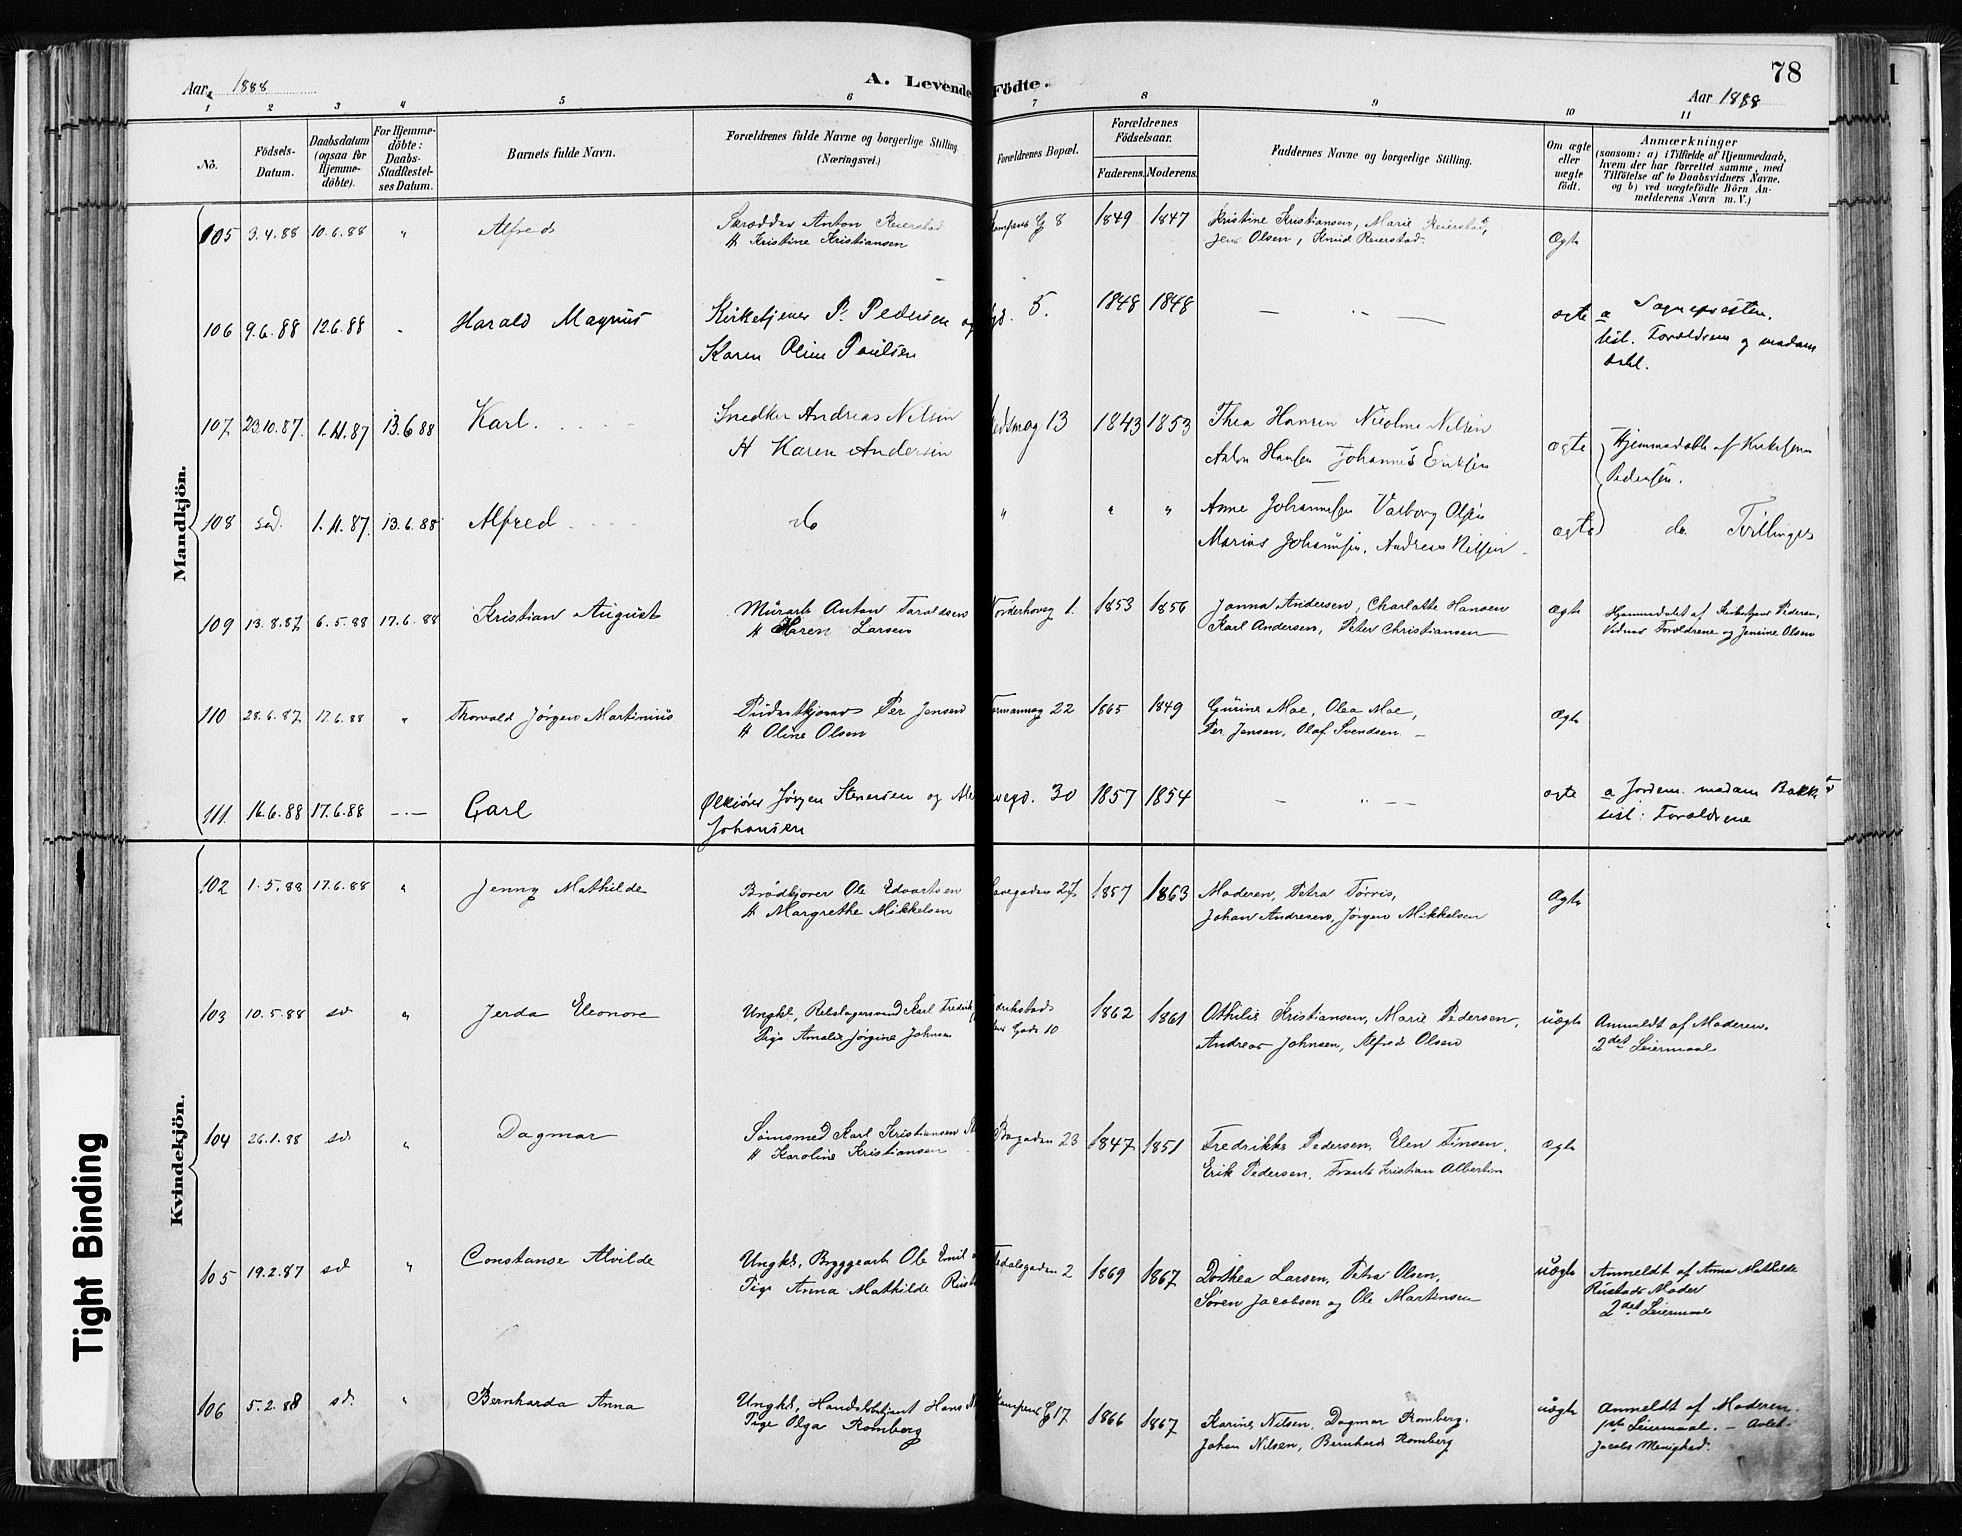 Aar 1888
A. Levende Födte.
78
Aar 1888
1 2 3 4 5 6 7 8 9 10 11
No.
Födsels-Datum.
Daabsdatum (ogsaa for Hjemme-döbte).
For Hjemme-döbte: Daabs-Stadfæstel-ses Datum.
Barnets fulde Navn.
Forældrenes fulde Navne og borgerlige Stilling (Næringsvei.)
Forældrenes Bopæl.
Forældrenes Födselsaar.
Faderens. Moderens.
Faddernes Navne og borgerlige Stilling.
Om ægte eller uægte födt.
Anmærkninger
(saasom: a) i Tilfælde af Hjemmedaab,
hvem der har forrettet samme, med
Tilföielse af to Daabsvidners Navne.
og b) ved uægtefödte Börn An-
melderens Navn m. V.)
Mandkjön.
105 3.4.88 10.6.88 " Alfred Skrædder Anton Reierstad Kampens G 8 1849 1847 Kristine Kristiansen, Marie Reierstad, Ægte
H Kristine Kristiansen Jens Olsen, Knud Reierstad.
106 9.6.88 12.6.88 " Harald Magnus Kirketjener P. Pedersen og gd. 5. 1848 1848 — " — ægte a Sognepresten.
Karen Oline Paulsen test. Forældrene og madam
Dahl.
107 23.10.87. 1.11.87 13.6.88 Karl. Snedker Andreas Nilsen 13 1843 1853 Thea Hansen Nicoline Nilsen ægte Hjemmedøbt af Kirketjener
H Karen Andersen Anton Hansen Johannes Pedersen.
108 s.d. 1.11.87. 13.6.88 Alfred do " " " Anne Johannesen Valborg Olsen ægte do. Tvillinger
Marius Johannesen, Andreas Nilsen
109 13.8.87 6.5.88 17.6.88 Kristian August Murarb Anton Taraldsen Norderhovsg 1. 1853 1856 Janna Andersen, Charlotte Hansen Ægte Hjemmedøbt af Kirketjener Pedersen,
H Karen Larsen Karl Andersen, Peter Christiansen Vidner Forældrene og Jensine Olsen
110 28.6.87 17.6.88 " Thorvald Jørgen Martinius Per Jensen Normannsg 22 1865 1849 Gurine Moe, Olea Moe, Ægte
H Oline Olsen Per Jensen, Olaf Svendsen. —
111 16.6.88 17.6.88 —"— Carl Ølkjører Jørgen Stenersen og vegd. 30 1857 1854 — " — — ægte a Jordem. madam Bakke
Johansen test: Forældrene
Kvindekjön.
102 1.5.88 17.6.88 " Jenny Mathilde Brødkjører Ole Edvartsen Havegaden 27 1857 1863 Moderen, Petra Tørris, Ægte
H Margrethe Mikkelsen Johan Andresen, Jørgen Mikkelsen
103 10.5.88 sd " Jerda Eleonore Ungkl, Rebslagersvend Karl Fredrik 1862 1861 Othilie Kristiansen, Marie Pedersen, uægte Anmeldt af Moderen.
Pige Amalie Jørgine Johnsen Gade 10 Andreas Johnsen, Alfred Olsen 2det Leiermaal
104 26.1.88 sd " Dagmar Sømsmed Karl Kristiansen Bogaden 23 1847 1851 Fredrikke Pedersen, Elen Finsen, Ægte
H Karoline Kristiansen Erik Pedersen, Frants Kristian Albertin
105 19.2.87 sd " Constanse Alvilde Ungkl, Bryggearb Ole Emil dalsgaden 2 1869 1867 Dorthea Larsen, Petra Olsen, uægte Anmeldt af Anna Mathilde
Pige Anna Mathilde Rustad Søren Jacobsen og Ole Martinsen Rustads Moder
2det Leiermaal
106 5.2.88 sd. " Bernharda Anna Ungkl, Handelsbetjent Hans Kampens G 17 1866 1867 Karine Nilsen, Dagmar Romberg. uægte Anmeldt af Moderen.
Pige Olga Romberg Johan Nilsen, Bernhard Romberg 1ste Leiermaal. — Avlet
Jacobs Menighed.
Tight Binding